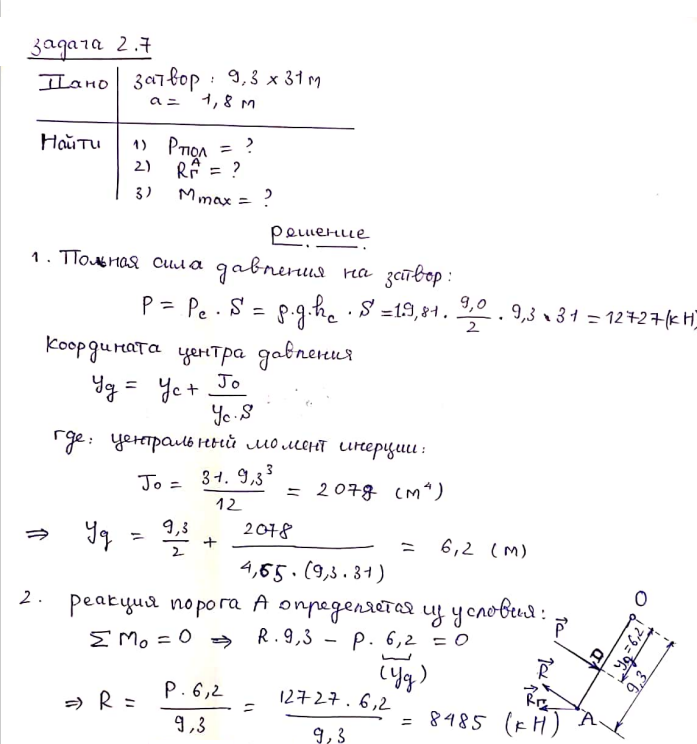 Задача 2.7
Дано | Затвор: 9,3 x 31 м
a = 1,8 м
Найти | 1) Pпол = ?
2) Rг^A = ?
3) Mmax = ?
Решение
1. Полная сила давления на затвор:
P = Pc · S = ρ·g·hc · S = 1·9,81 · 9,0/2 · 9,3 · 31 = 12727 (кН)
Координата центра давления
Yg = Yc + Jo/(Yc·S)
где: центральный момент инерции:
Jo = (31 · 9,3³)/12 = 2078 (м⁴)
⇒ Yg = 9,3/2 + 2078/(4,65·(9,3·31)) = 6,2 (м)
2. реакция порога A определяется из условия:
ΣMo = 0 ⇒ R·9,3 − P·6,2 = 0
(Yg)
⇒ R = (P·6,2)/9,3 = (12727·6,2)/9,3 = 8485 (кН)
O
P
D
Yg = 6,2
9,3
R
Rг
A